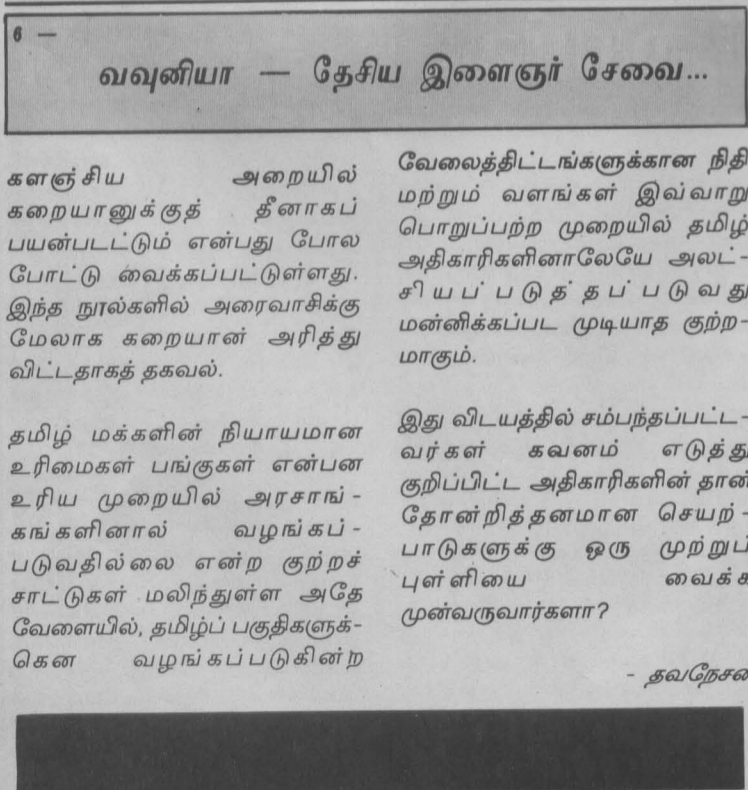 6 —
வவுனியா — தேசிய இளைஞர் சேவை...
களஞ்சிய அறையில்
கறையானுக்குத் தீனாகப்
பயன்படட்டும் என்பது போல
போட்டு வைக்கப்பட்டுள்ளது.
இந்த நூல்களில் அரைவாசிக்கு
மேலாக கறையான் அரித்து
விட்டதாகத் தகவல்.
தமிழ் மக்களின் நியாயமான
உரிமைகள் பங்குகள் என்பன
உரிய முறையில் அரசாங்-
கங்களினால் வழங்கப்-
படுவதில்லை என்ற குற்றச்
சாட்டுகள் மலிந்துள்ள அதே
வேளையில், தமிழ்ப் பகுதிகளுக்-
கென வழங்கப்படுகின்ற
வேலைத்திட்டங்களுக்கான நிதி
மற்றும் வளங்கள் இவ்வாறு
பொறுப்பற்ற முறையில் தமிழ்
அதிகாரிகளினாலேயே அலட்-
சியப்படுத்தப்படுவது
மன்னிக்கப்பட முடியாத குற்ற-
மாகும்.
இது விடயத்தில் சம்பந்தப்பட்ட-
வர்கள் கவனம் எடுத்து
குறிப்பிட்ட அதிகாரிகளின் தான்
தோன்றித்தனமான செயற்-
பாடுகளுக்கு ஒரு முற்றுப்
புள்ளியை வைக்க
முன்வருவார்களா?
- தவநேசன்